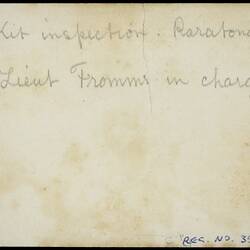 Kit inspection. Raratong
Lieut Fromms in charg
REG. NO. 39